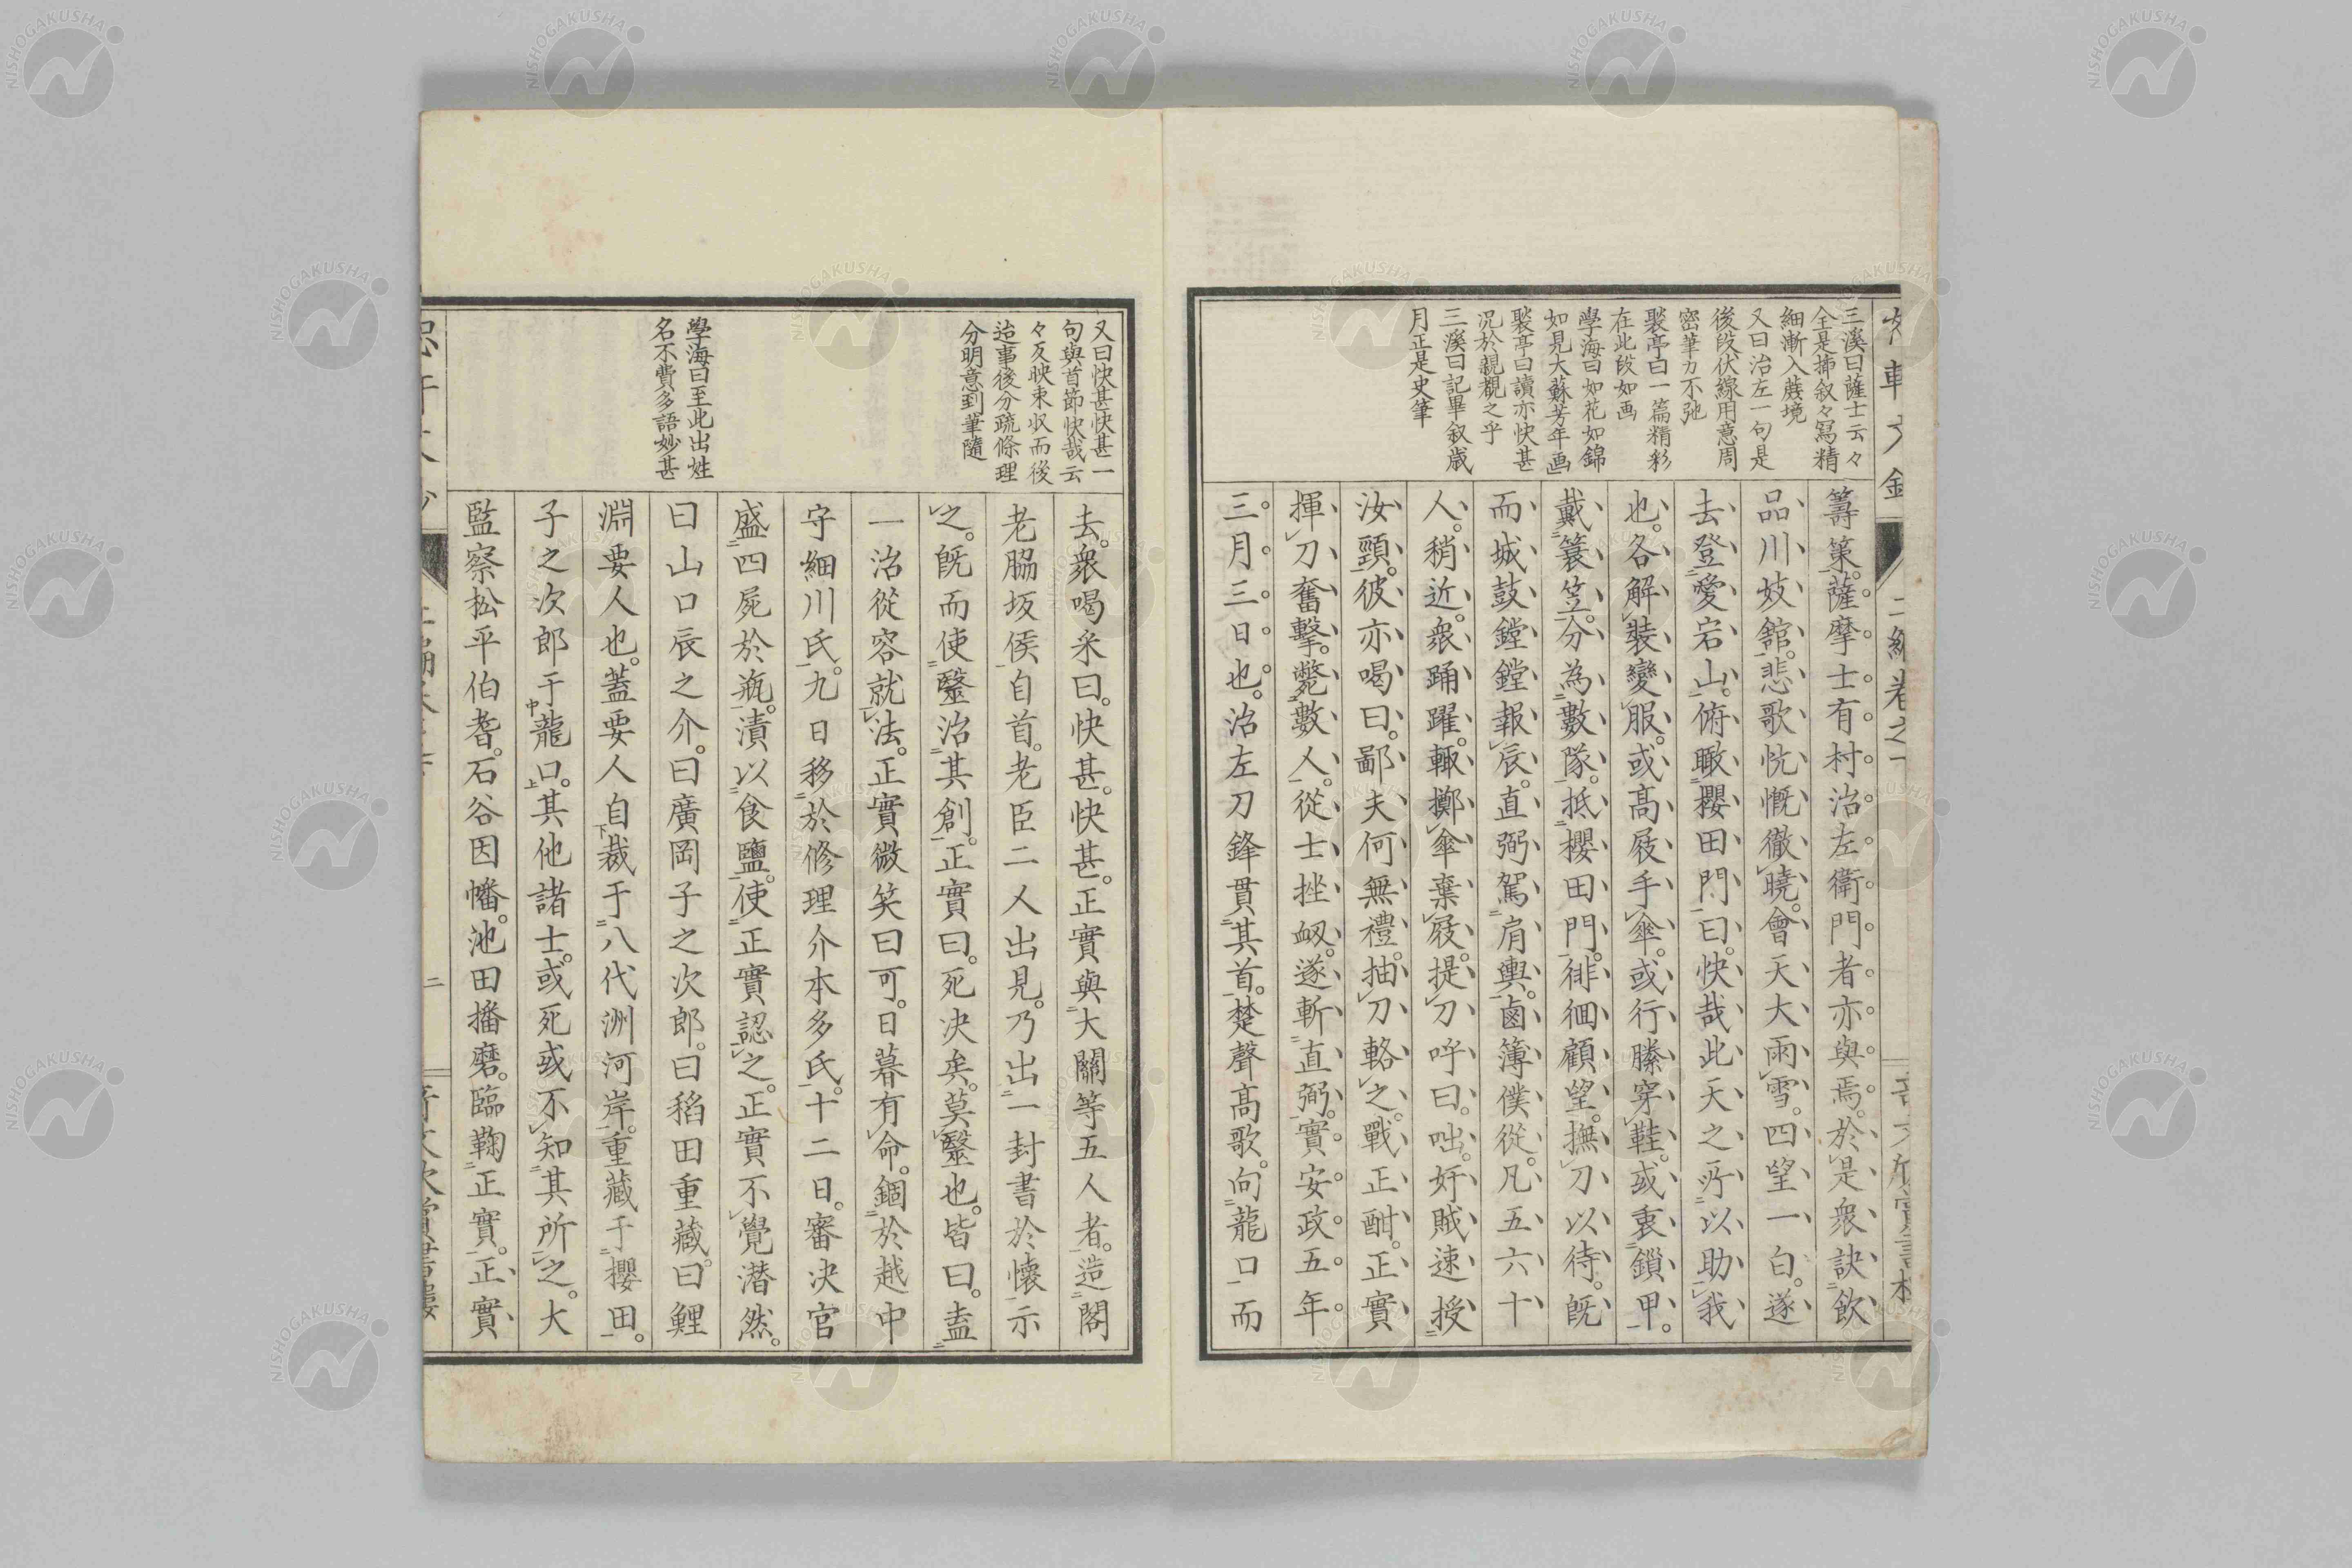 三溪曰薩士云々
全是挿叙々寫精
細漸入蔗境
又曰治左一句是
後段伏線用意周
密筆力不弛
褧亭曰一篇精彩
在此段如画
學海曰如花如錦
如見大蘇芳年画
褧亭曰讀亦快甚
况於親覩之乎
三溪曰記畢叙歳
月正是史筆
籌策。薩摩士有村治左衛門者亦與焉。於是衆訣飲
品川妓館。悲歌忼慨徹曉。會天大雨雪。四望一白。遂
去登愛宕山。俯瞰櫻田門曰。快哉此天之所以助我
也。各解裝變服。或髙屐手傘。或行縢穿鞋。或衷鎻甲。
戴簑笠。分為數隊。抵櫻田門。徘徊顧望。撫刀以待。既
而城鼓鏜鏜報辰。直弼駕肩輿。鹵簿僕從。凡五六十
人。稍近。衆踊躍。輙擲傘棄屐。提刀呼曰。咄。奸賊速授
汝頸。彼亦喝曰。鄙夫何無禮。抽刀輅之。戰正酣。正實
揮刀奮擊。斃數人。從士挫衂。遂斬直弼。實安政五年
三月三日也。治左刀鋒貫其首。楚聲髙歌。向龍口而
二編卷之一
又曰快甚快甚一
句與首節快哉云
々反映束収而後
迨事後分疏條理
分明意到筆隨
學海曰至此出姓
名不費多語妙甚
去。衆喝采曰。快甚。快甚。正實與大關等五人者。造閣
老脇坂侯自首。老臣二人出見。乃出一封書於懷示
之。既而使毉治其創。正實曰。死决矣。莫毉也。皆曰。盍
一治從容就法。正實微笑曰可。日暮有命。錮於越中
守細川氏。九日移於修理介本多氏。十二日。審决官
盛四屍於瓶。漬以食鹽。使正實認之。正實不覺潸然。
曰山口辰之介。曰廣岡子之次郎。曰稻田重藏。曰鯉
淵要人也。蓋要人自裁于八代洲河岸。重藏于櫻田。
子之次郎于龍口。其他諸士。或死或不知其所之。大
監察松平伯耆。石谷因幡。池田播磨。臨鞠正實。正實
二